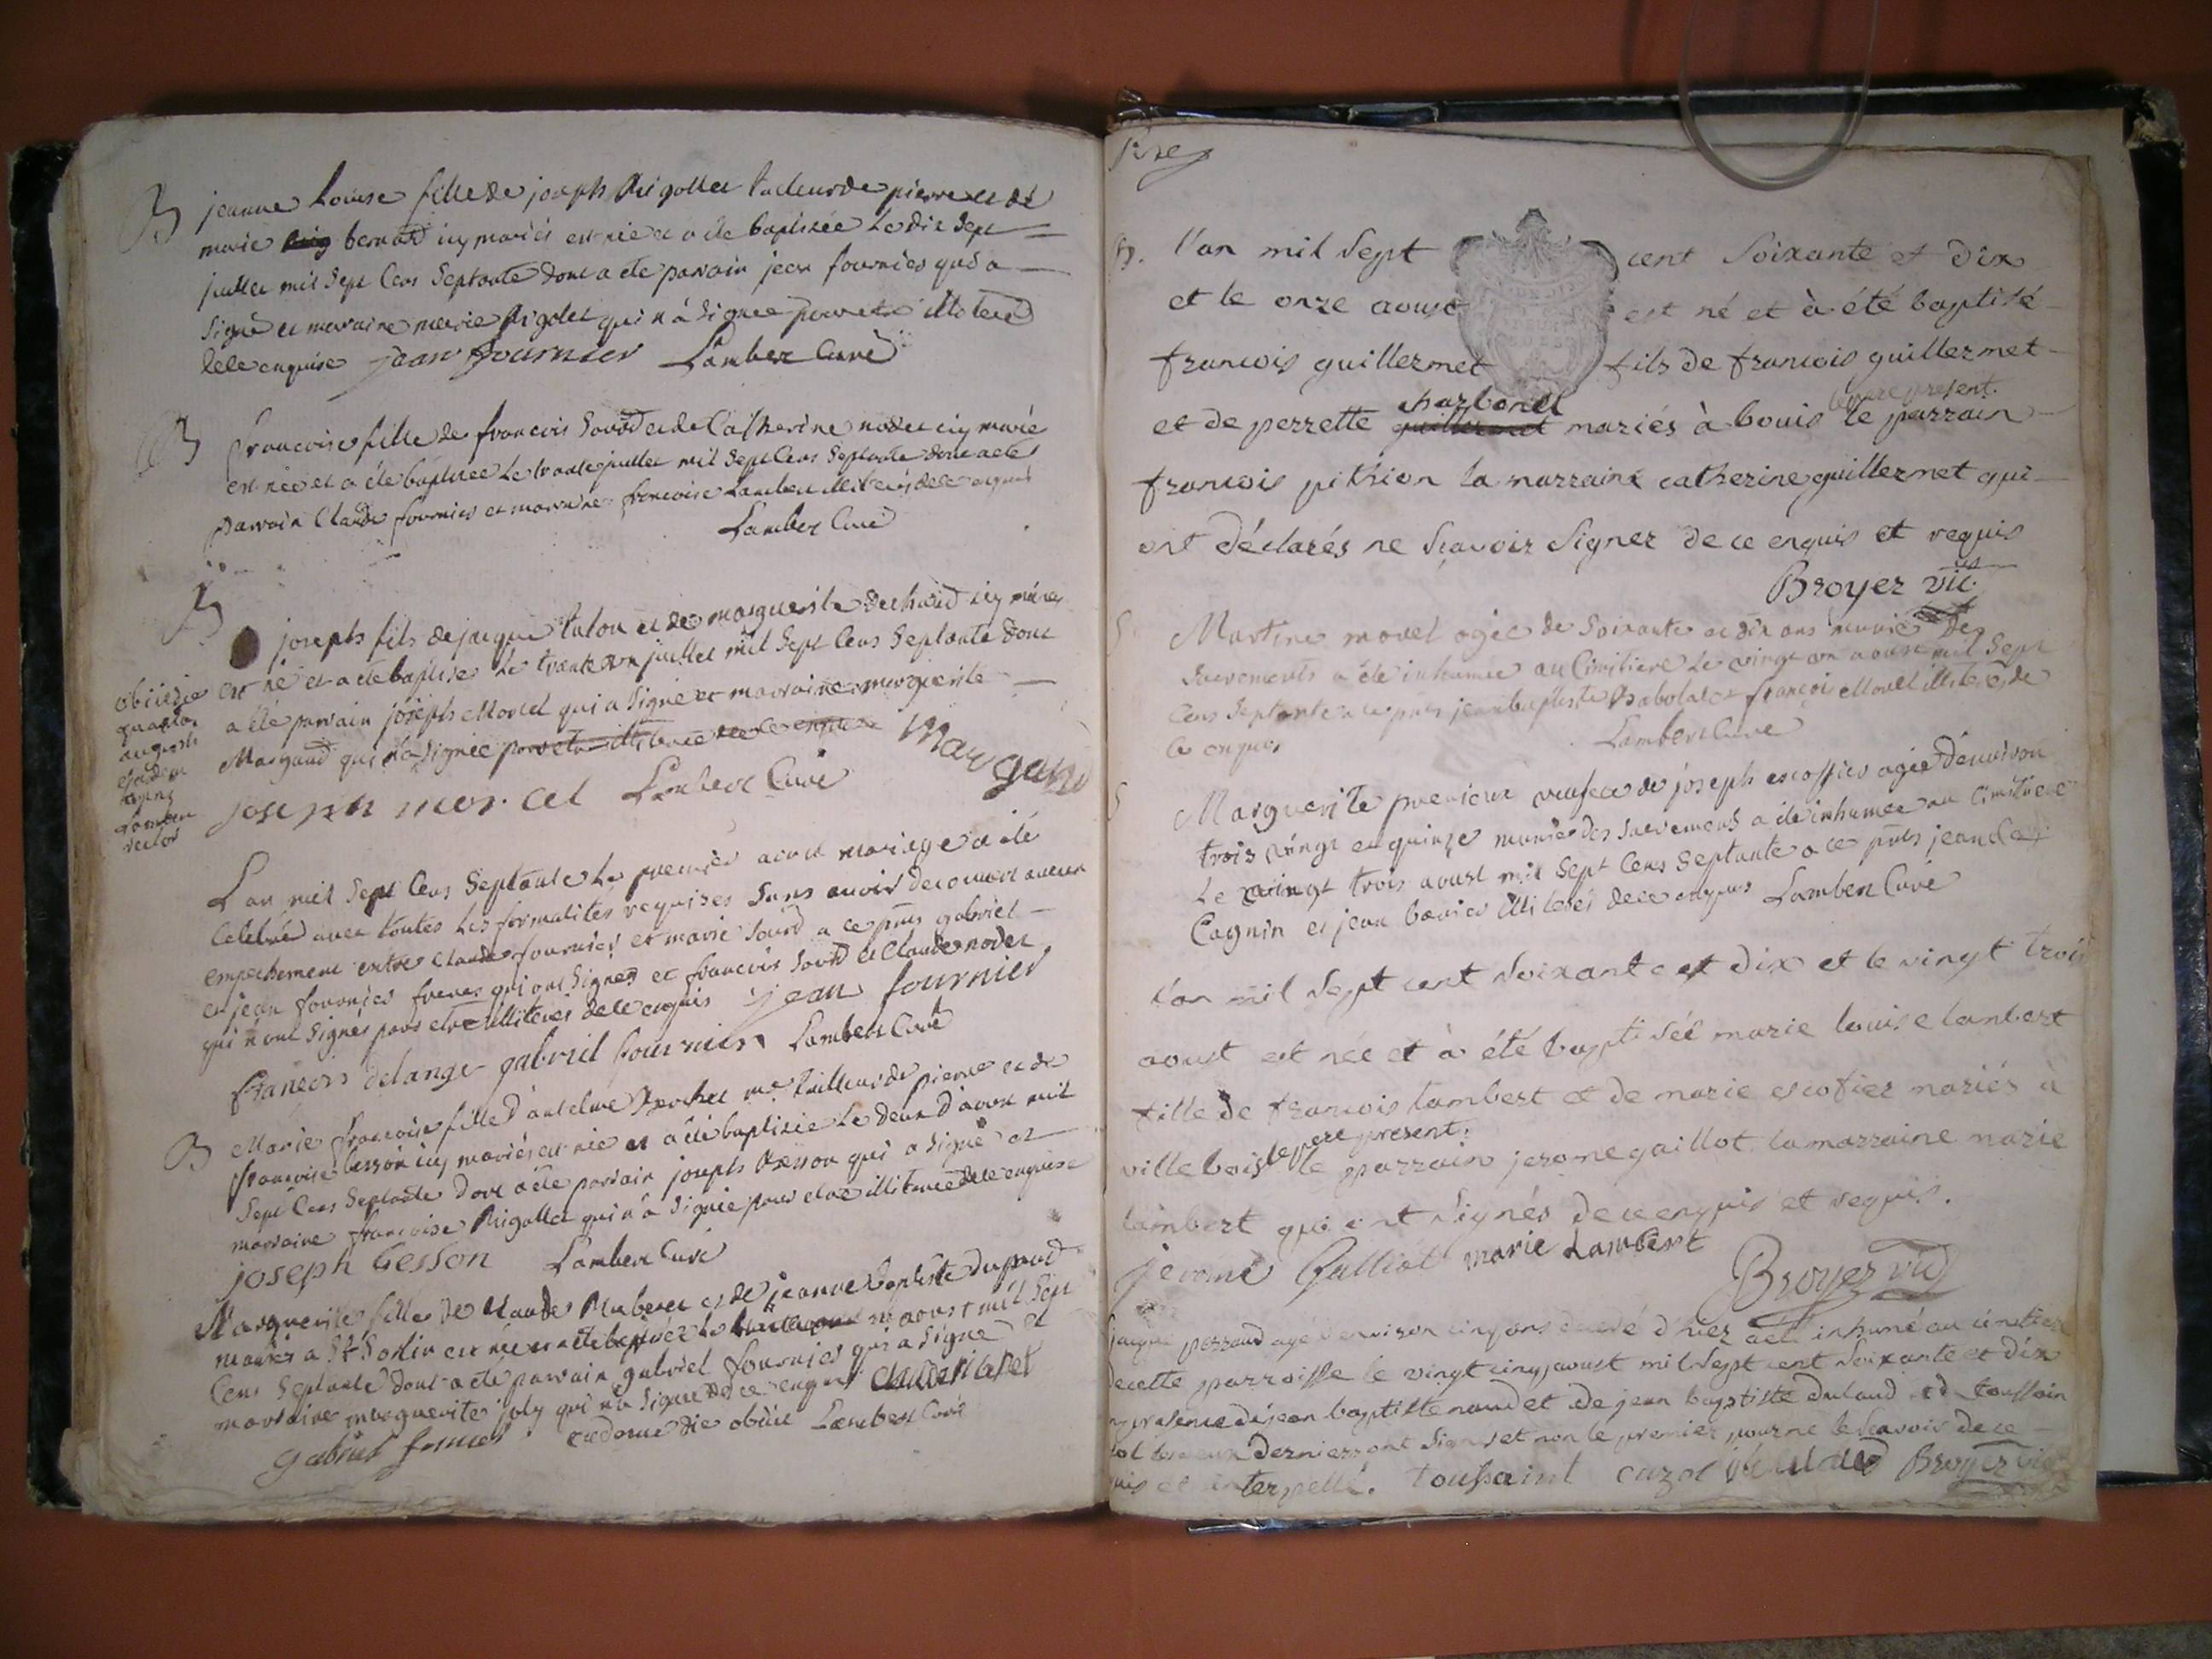 B jeanne Louise fille de joseph Rigollet tailleur de pierre et de
marie bernard icy mariés est née et a été baptisée Le dix sept
juillet mil Sept Cens Septante dont a été parain jean fournier qui a
Signé et maraine marie Rigolet qui n'a Signée pour etre illiterée
dece enquise jean fournier Lambert Curé
B francoise fille de francois Sourd et de Catherine nodet icy marié
est née et a été baptisée Le trante juillet mil Sept Cens Septante dont a eté
parain Claude fournier et maraine francoise Lambert illiterés dece enquis
Lambert Curé
B
joseph fils de jacque talon et de marguerite dechaud icy mariés
est né et a été baptisé Le trante un juillet mil Sept Cens Septante dont
a été parain joseph Morel qui a Signé et marraine marguerite
Margand qui n'a Signée pour etre illiterée dece enquise Margand
joseph morel Lambert Curé
obiit die
quarta
augusti
ejusdem
anni
Lambert
rector
L'an mil Sept Cens Septante Le premier aoust mariage a été
Celebré avec toutes Les formalités requises Sans avoir decouvert aucun
empechement entre Claude fournier et marie Sourd a ce pnts gabriel
et jean fournier freres qui ont Signés et francois Sourd et Claude nodet
qui n'ont Signés pour etre illiterés dece enquis jean fournier
francois delange gabriel fournier Lambert Curé
B Marie francoise fille d'antelme Trochet me tailleur de pierre et de
francoise besson icy mariés est née et a été baptisée Le deux d'aoust mil
Sept Cens Septante dont a été parain joseph besson qui a Signé et
marraine francoise Rigollet qui n'a Signée pour etre illiterée dece enquise
joseph besson Lambert Curé
Marguerite fille de Claude et de jeanne baptiste dupraud
mariés a St Sorlin est née et a été baptisée Le aoust mil Sept
Cens Septante dont a été parain gabriel fournier qui a Signé et
marraine marguerite joly qui n'a Signée dece enquis
gabriel fornier eademe die obiit Lambert Curé
B. l'an mil Sept cent Soixante et dix
et le onze aoust est né et à été baptisé
francois guillermet fils de francois guillermet
le pere present.
charbonel
et de perrette guillermet mariés à bouis le parrain
francois pithion la marraine catherine guillermet qui
ont déclarés ne Sçavoir Signer de ce enquis et requis
Broyer vic.
S Martine morel agée de Soixante et dix ans munie des
Sacrements a été inhumée au Cimitiere Le vingt un aoust mil Sept
Cens Septante a ce pnts jean baptiste et francois Morel illiterés de
ce enquis Lambert Curé
S Marguerite premieux veufve de joseph escoffier agée d'environ
trois vingt et quinze munie des Sacremens a été inhumée au Cimitiere
Le vingt trois aoust mil Sept Cens Septante a ce pnts jean
Cagnin et jean illiterés dece enquis Lambert Curé
l'an mil Sept cent Soixante et dix et le vingt trois
aoust est née et à été baptisée marie louise lambert
fille de francois lambert et de marie escofier mariés à
villebois le pere present. le parrain jerome gaillot la marraine marie
lambert qui ont Signés de ce enquis et requis.
jerome Galliot marie Lambert Broyer vic
jacque perraud agé d'environ cinq ans a été inhumé au cimetiere
decette parroisse le vingt cinq aoust mil Sept cent Soixante et dix
en presence de jean baptiste naudet de jean baptiste dulaud et de toussain
deux derniers ont Signés et non le premier pour ne le Scavoir de ce
enquis et interpellé. toussaint cuzol Broyer vic